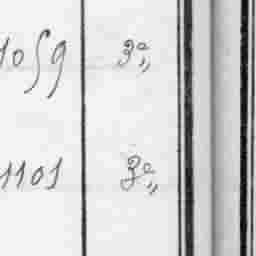 1059 3º„
1101 3º„